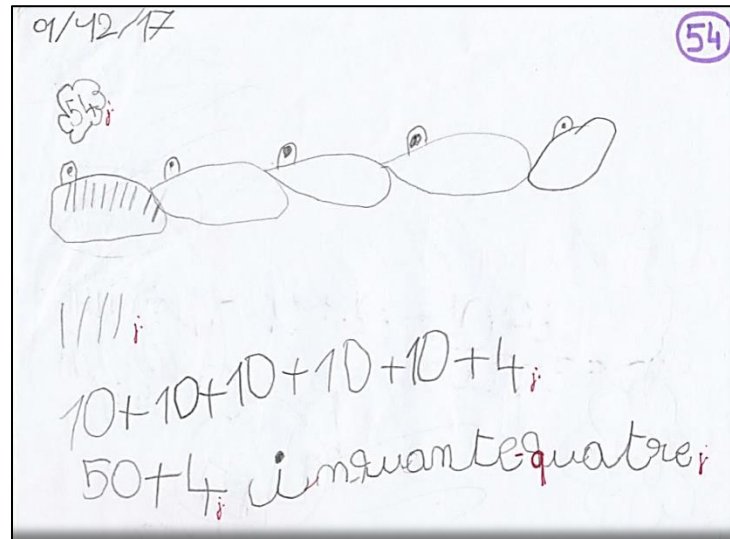 9/12/17
54
54 j
j
10+10+10+10+10+4 j
50+4 j cinquante-quatre j